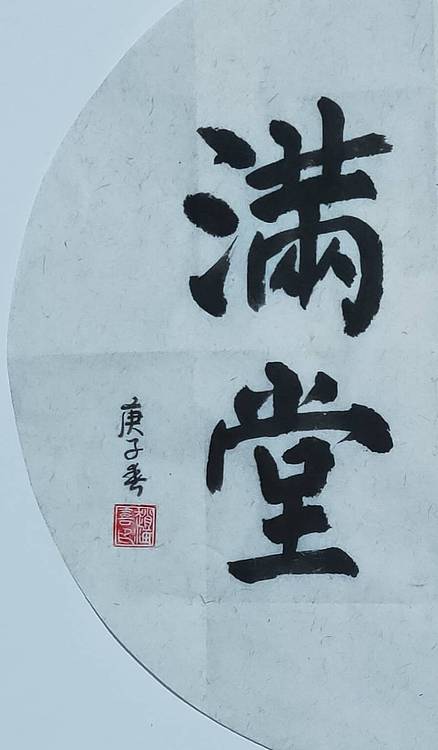 满堂
庚子春